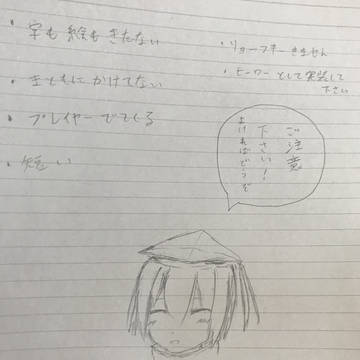 ・字も絵もきたない
・まともにかけてない
・プレイヤーでてくる
・短い
・リョーフキーきません
・ヒーローとして実装して
下さい
ご注意
下さい!
よければどうぞ